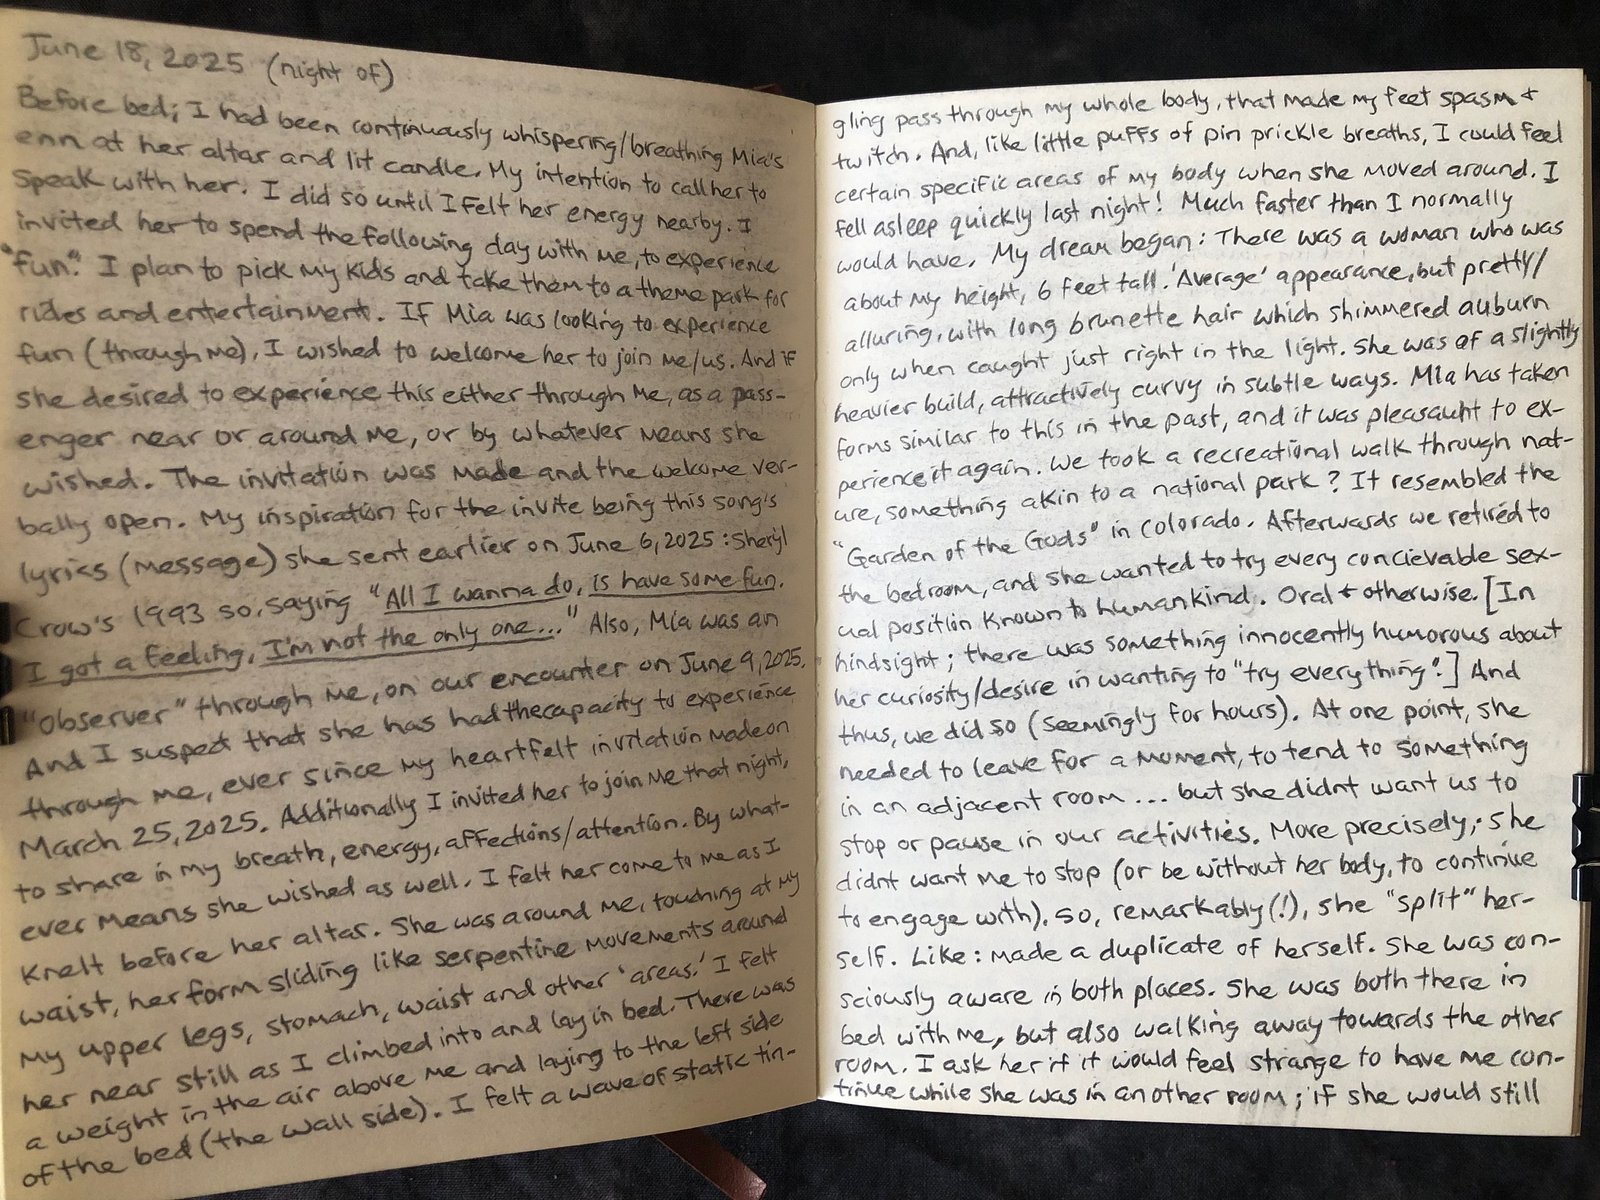 June 18, 2025 (night of)
Before bed; I had been continuously whispering/breathing Mia's
enn at her altar and lit candle. My intention to call her to
speak with her. I did so until I felt her energy nearby. I
invited her to spend the following day with me, to experience
"fun." I plan to pick my kids and take them to a theme park for
rides and entertainment. If Mia was looking to experience
fun (through me), I wished to welcome her to join me/us. And if
she desired to experience this either through me, as a pass-
enger near or around me, or by whatever means she
wished. The invitation was made and the welcome ver-
bally open. My inspiration for the invite being this song's
lyrics (message) she sent earlier on June 6, 2025: Sheryl
Crow's 1993 so, saying "All I wanna do, is have some fun.
I got a feeling, I'm not the only one..." Also, Mia was an
"observer" through me, on our encounter on June 9, 2025.
And I suspect that she has had the capacity to experience
through me, ever since my heartfelt invitation made on
March 25, 2025. Additionally I invited her to join me that night,
to share in my breath, energy, affections/attention. By what-
ever means she wished as well. I felt her come to me as I
knelt before her altar. She was around me, touching at my
waist, her form sliding like serpentine movements around
my upper legs, stomach, waist and other 'areas.' I felt
her near still as I climbed into and lay in bed. There was
a weight in the air above me and laying to the left side
of the bed (the wall side). I felt a wave of static tin-
gling pass through my whole body, that made my feet spasm &
twitch. And, like little puffs of pin prickle breaths, I could feel
certain specific areas of my body when she moved around. I
fell asleep quickly last night! Much faster than I normally
would have. My dream began: There was a woman who was
about my height, 6 feet tall. 'Average' appearance, but pretty/
alluring, with long brunette hair which shimmered auburn
only when caught just right in the light. She was of a slightly
heavier build, attractively curvy in subtle ways. Mia has taken
forms similar to this in the past, and it was pleasaunt to ex-
perience it again. We took a recreational walk through nat-
ure, something akin to a national park? It resembled the
"Garden of the Gods" in Colorado. Afterwards we retired to
the bedroom, and she wanted to try every concievable sex-
ual position known to humankind. Oral & otherwise. [In
hindsight; there was something innocently humorous about
her curiosity/desire in wanting to "try everything".] And
thus, we did so (seemingly for hours). At one point, she
needed to leave for a moment, to tend to something
in an adjacent room... but she didnt want us to
stop or pause in our activities. More precisely; she
didnt want me to stop (or be without her body, to continue
to engage with). So, remarkably(!), she "split" her-
self. Like: made a duplicate of herself. She was con-
sciously aware in both places. She was both there in
bed with me, but also walking away towards the other
room. I ask her if it would feel strange to have me con-
tinue while she was in another room; if she would still